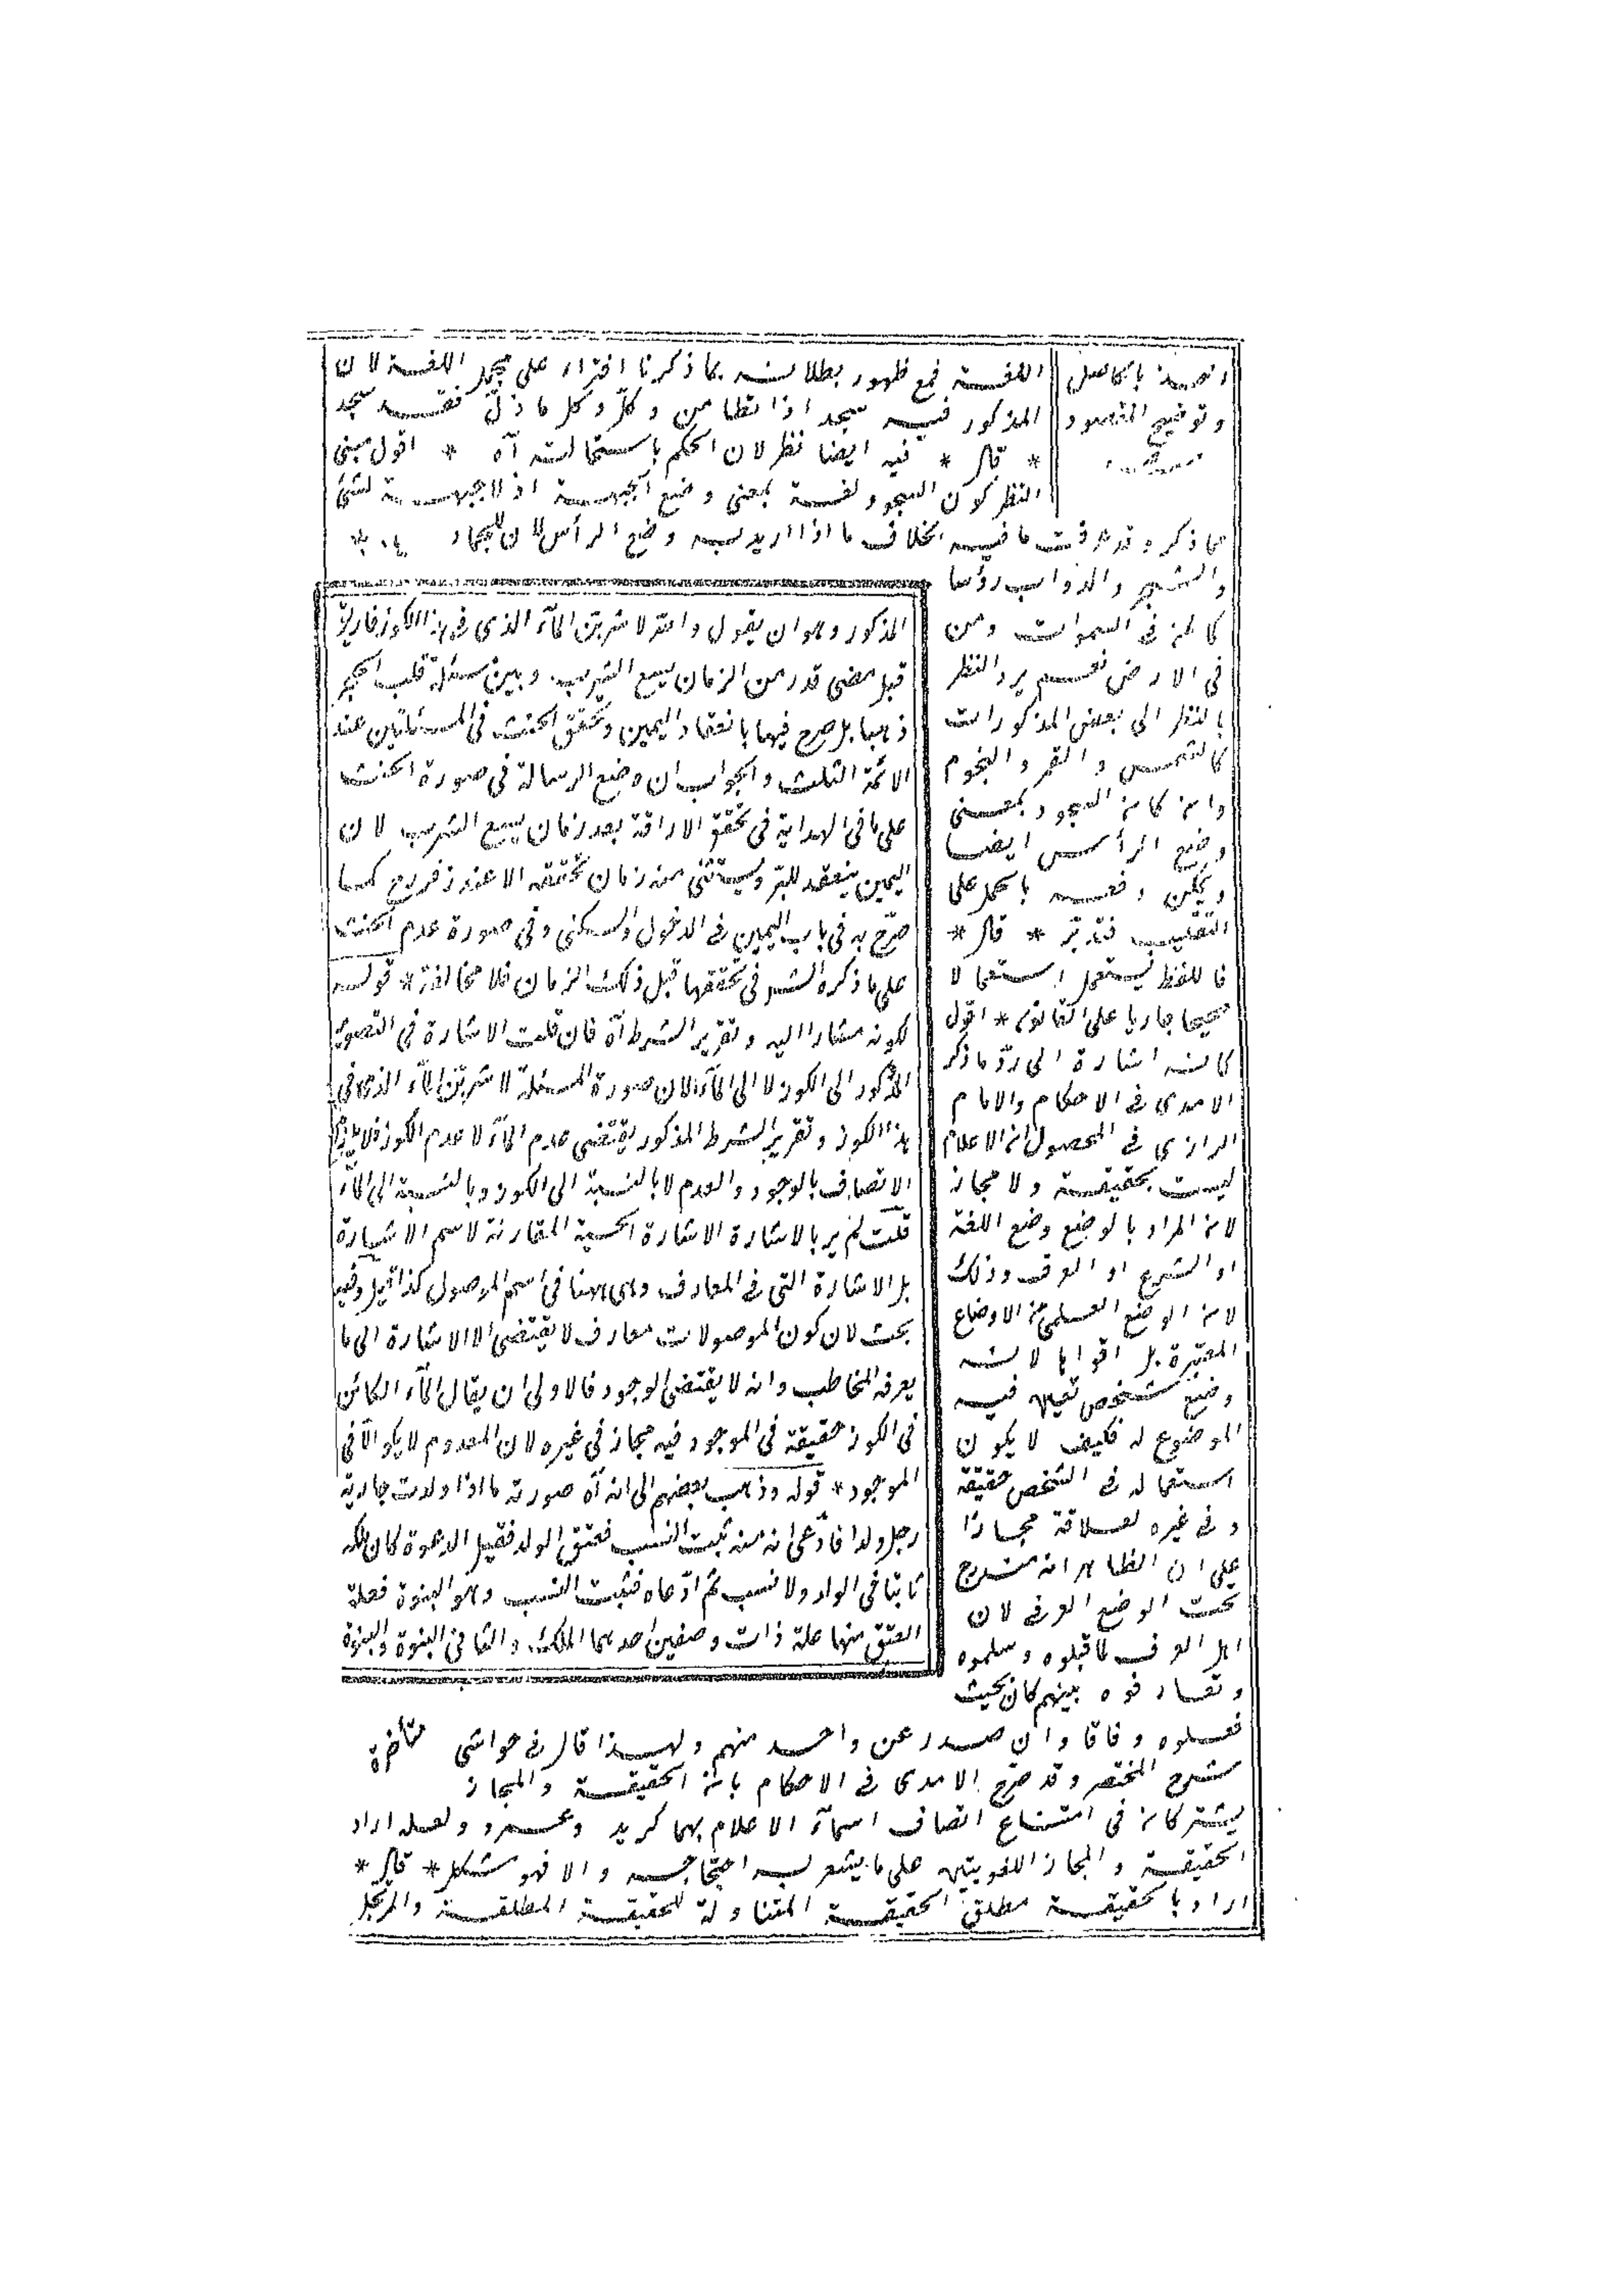 اللغة فمع ظهور بطلانه بما ذكرنا افتراء على مجمل اللغة لان
المذكور فيه سجد اذا تطامن وكلّ وكل ما ذلّ فقد سجد
* قال * فيه ايضا نظر لان الحكم باستحالته آه * اقول مبنى
النظر كون السجود لغة بمعنى وضع الجبهة اذ لا جبهة لشئ
تصيد بالحاصل
وتوضيح المقصود
مما ذكره وقد عرفت ما فيه بخلاف ما اذا اريد به وضع الرأس لان للجماد
والشجر والدواب رؤسا
كالجن فى السموات ومن
فى الارض نعم يرد النظر
بالنظر الى بعض المذكورات
كالشمس والقمر والنجوم
وان كان السجود بمعنى
وضع الرأس ايضا
ويمكن دفعه بالحمل على
التغليب فتدبّر * قال *
فاللفظ يستعمل استعمالا
صحيحا جاريا على القانون * اقول
كانه اشارة الى ردّ ما ذكر
الامدى فى الاحكام والامام
الرازى فى المحصول ان الاعلام
ليست بحقيقة ولا مجاز
لان المراد بالوضع وضع اللغة
او الشرع او العرف وذلك
لان الوضع العلمى من الاوضاع
المعتبرة بل اقواها لانه
وضع شخصى تعين فيه
الموضوع له فكيف لا يكون
استعماله فى الشخص حقيقة
وفى غيره لعلاقة مجازا
على ان الظاهر انه مندرج
تحت الوضع العرفى لان
اهل العرف لما قبلوه وسلموه
وتعارفوه بينهم كان بحيث
فعلوه وفاقا وان صدر عن واحد منهم ولهذا قال فى حواشى
شرح المختصر وقد صرّح الامدى فى الاحكام بان الحقيقة والمجاز
يشتركان فى امتناع اتصاف اسمآء الاعلام بهما كزيد وعمرو ولعله اراد
الحقيقة والمجاز اللغويين على ما يشعر به احتجاجه والا فهو مشكل * قال *
اراد بالحقيقة مطلق الحقيقة المتناولة للحقيقة المطلقة والمرتجل
المذكور وهو ان يقول والله لاشربنّ المآء الذى فى هذا الكوز فاريق
قبل مضى قدر من الزمان يسع الشرب وبين مسئلة قلب الحجر
ذهبا بل صرح فيها بانعقاد اليمين وتحقق الحنث فى المسئلتين عند
الائمة الثلث والجواب ان وضع الرسالة فى صورة الحنث
على ما فى الهداية فى تحقق الاراقة بعد زمان يسع الشرب لان
اليمين ينعقد للبرّ ويستثنى منه زمان تحققه الا عند زفر رح كما
صرّح به فى باب اليمين فى الدخول والسكنى وفى صورة عدم الحنث
على ما ذكره الش فى تحققها قبل ذلك الزمان فلا مخالفة * قوله
لكونه مشارا اليه وتقرير الشرط آه فان قلت الاشارة فى التصوير
المذكور الى الكوز لا الى المآء لان صورة المسئلة لاشربنّ المآء الذى فى
هذا الكوز وتقرير الشرط المذكور يقتضى عدم المآء لا عدم الكوز فلا يلزم
الاتصاف بالوجود والعدم لا بالنسبة الى الكوز وبالنسبة الى المآء
قلت لم يرد بالاشارة الاشارة الحسية المقارنة لاسم الاشارة
بل الاشارة التى فى المعارف وهى ههنا فى اسم الموصول كذا قيل وفيه
بحث لان كون الموصولات معارف لا يقتضى الا الاشارة الى ما
يعرفه المخاطب وانه لا يقتضى الوجود فالاولى ان يقال المآء الكائن
فى الكوز حقيقة فى الموجود فيه مجاز فى غيره لان المعدوم لا يكون الا فى
الموجود * قوله وذهب بعضهم الى انه آه صورته ما اذا ولدت جارية
رجل ولدا فادّعى انه منه ثبت النسب فعتق الولد فقبل الدعوة كان ملكه
ثابتا فى الولد ولا نسب ثم ادّعاه فثبت النسب وهو البنوة فعلة
العتق منها علة ذات وصفين احدهما الملك والثانى البنوة والبنوة
متأخرة